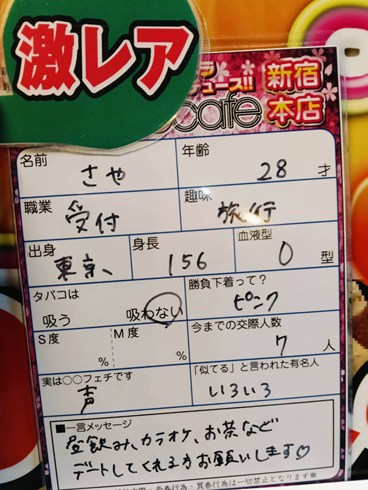 激レア
ラ
ュース!!
cafe
新宿
本店
名前 さや 年齢 28 才
職業 受付 趣味 旅行
出身 東京、 身長 156 血液型 O 型
タバコは 吸う 吸わない 勝負下着って? ピンク
S度 % M度 % 今までの交際人数 7 人
実は○○フェチです 声 「似てる」と言われた有名人 いろいろ
■一言メッセージ
昼飲み、カラオケ、お茶など
デートしてくれる方お願いします♡
・売春行為・買春行為は一切禁止となります※